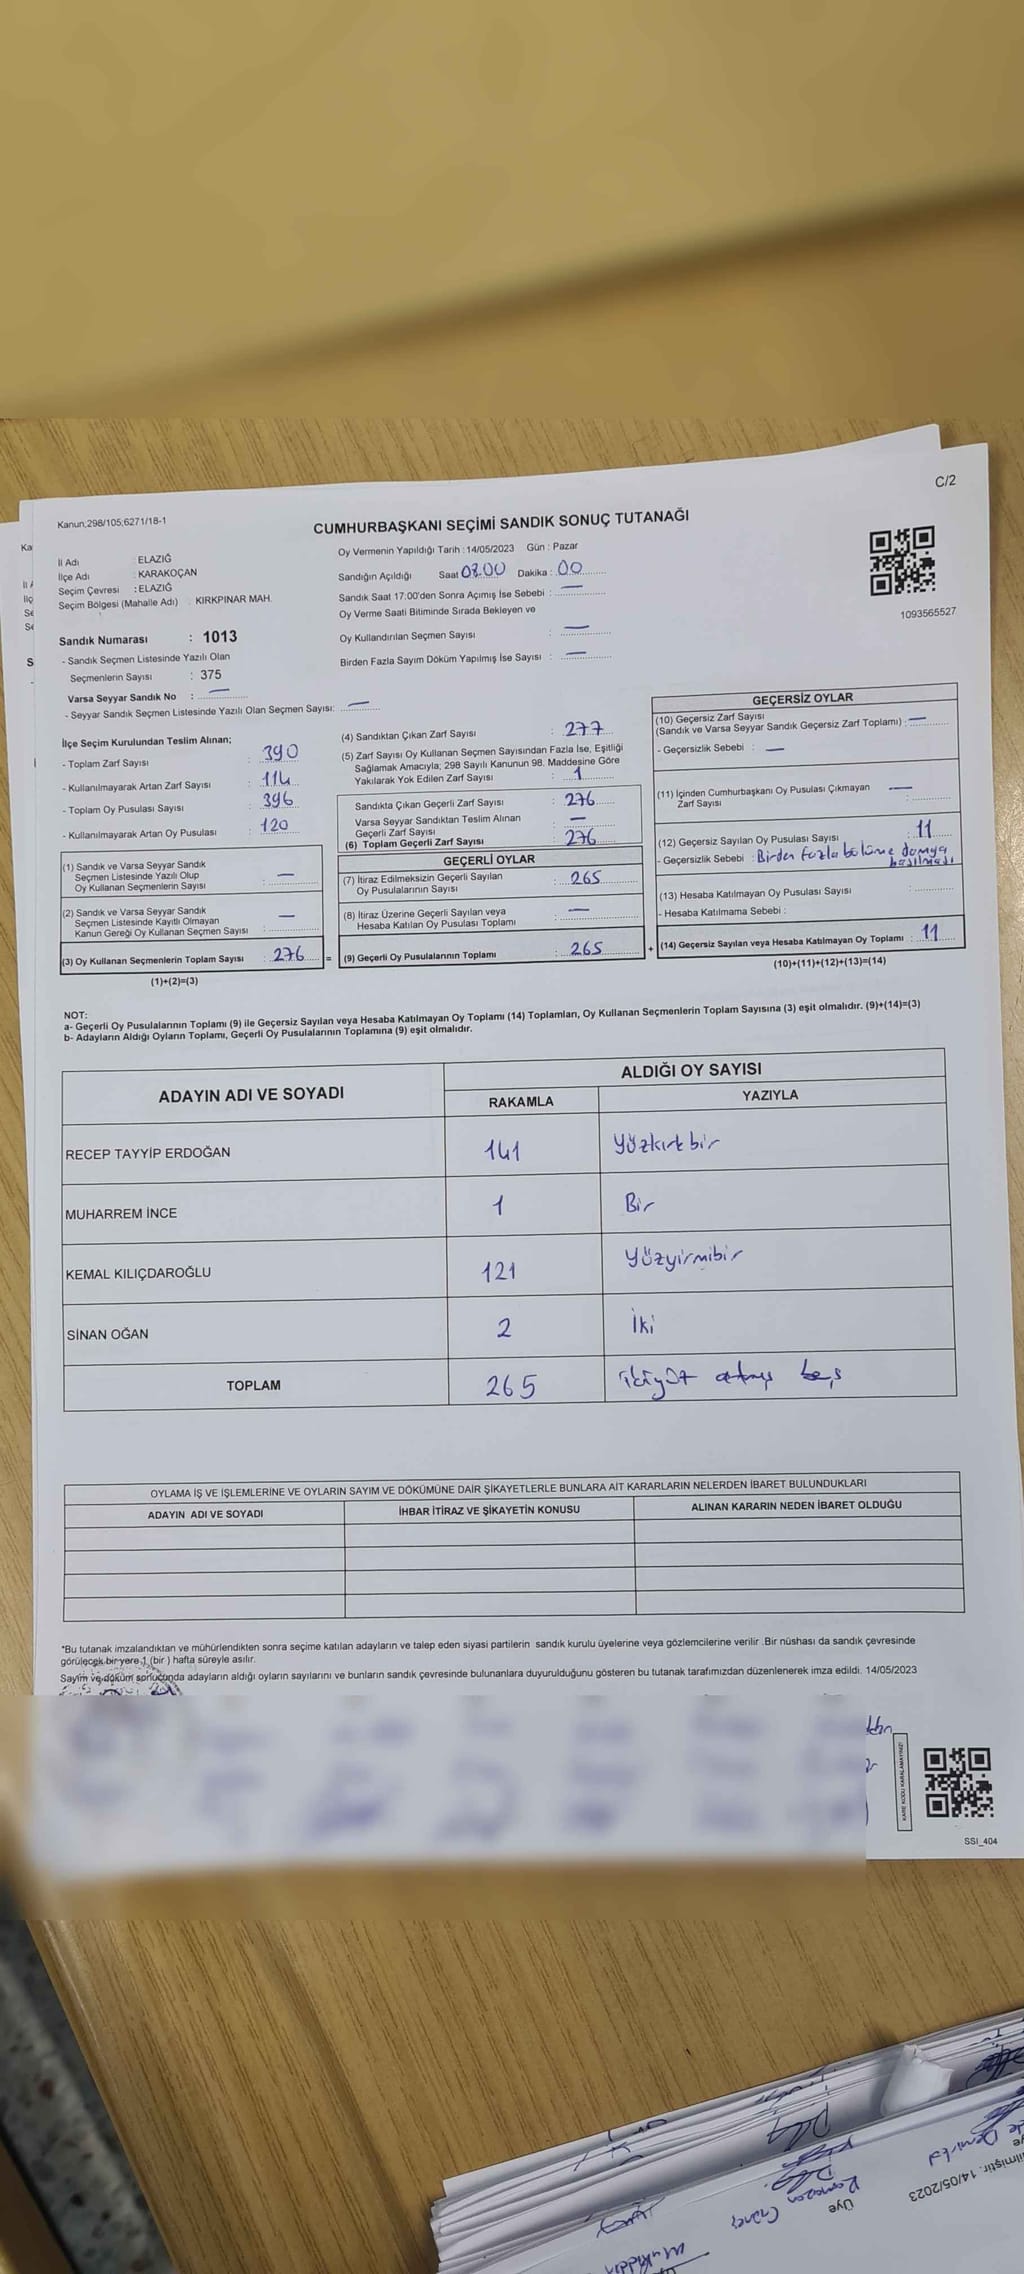 C/2
Kanun;298/105;6271/18-1
CUMHURBAŞKANI SEÇİMİ SANDIK SONUÇ TUTANAĞI
İl Adı : ELAZIĞ
İlçe Adı : KARAKOÇAN
Seçim Çevresi : ELAZIĞ
Seçim Bölgesi (Mahalle Adı) KIRKPINAR MAH.
Oy Vermenin Yapıldığı Tarih : 14/05/2023 Gün : Pazar
Sandığın Açıldığı Saat 08.00 Dakika : 00
Sandık Saat 17:00'den Sonra Açımış İse Sebebi : —
Oy Verme Saati Bitiminde Sırada Bekleyen ve
Oy Kullandırılan Seçmen Sayısı : —
Birden Fazla Sayım Döküm Yapılmış İse Sayısı : —
1093565527
Sandık Numarası : 1013
- Sandık Seçmen Listesinde Yazılı Olan
Seçmenlerin Sayısı : 375
Varsa Seyyar Sandık No : —
- Seyyar Sandık Seçmen Listesinde Yazılı Olan Seçmen Sayısı: —
İlçe Seçim Kurulundan Teslim Alınan;
- Toplam Zarf Sayısı : 390
- Kullanılmayarak Artan Zarf Sayısı : 114
- Toplam Oy Pusulası Sayısı : 396
- Kullanılmayarak Artan Oy Pusulası : 120
(1) Sandık ve Varsa Seyyar Sandık
Seçmen Listesinde Yazılı Olup
Oy Kullanan Seçmenlerin Sayısı : —
(2) Sandık ve Varsa Seyyar Sandık
Seçmen Listesinde Kayıtlı Olmayan
Kanun Gereği Oy Kullanan Seçmen Sayısı : —
(3) Oy Kullanan Seçmenlerin Toplam Sayısı : 276 =
(1)+(2)=(3)
(4) Sandıktan Çıkan Zarf Sayısı : 277
(5) Zarf Sayısı Oy Kullanan Seçmen Sayısından Fazla İse, Eşitliği
Sağlamak Amacıyla; 298 Sayılı Kanunun 98. Maddesine Göre
Yakılarak Yok Edilen Zarf Sayısı : 1
Sandıkta Çıkan Geçerli Zarf Sayısı : 276
Varsa Seyyar Sandıktan Teslim Alınan
Geçerli Zarf Sayısı : —
(6) Toplam Geçerli Zarf Sayısı : 276
GEÇERLİ OYLAR
(7) İtiraz Edilmeksizin Geçerli Sayılan
Oy Pusulalarının Sayısı : 265
(8) İtiraz Üzerine Geçerli Sayılan veya
Hesaba Katılan Oy Pusulası Toplamı : —
(9) Geçerli Oy Pusulalarının Toplamı : 265 +
GEÇERSİZ OYLAR
(10) Geçersiz Zarf Sayısı
(Sandık ve Varsa Seyyar Sandık Geçersiz Zarf Toplamı) : —
- Geçersizlik Sebebi : —
(11) İçinden Cumhurbaşkanı Oy Pusulası Çıkmayan
Zarf Sayısı : —
(12) Geçersiz Sayılan Oy Pusulası Sayısı : 11
- Geçersizlik Sebebi : Birden fazla bölüme damga
basılması
(13) Hesaba Katılmayan Oy Pusulası Sayısı :
- Hesaba Katılmama Sebebi :
(14) Geçersiz Sayılan veya Hesaba Katılmayan Oy Toplamı : 11
(10)+(11)+(12)+(13)=(14)
NOT:
a- Geçerli Oy Pusulalarının Toplamı (9) ile Geçersiz Sayılan veya Hesaba Katılmayan Oy Toplamı (14) Toplamları, Oy Kullanan Seçmenlerin Toplam Sayısına (3) eşit olmalıdır. (9)+(14)=(3)
b- Adayların Aldığı Oyların Toplamı, Geçerli Oy Pusulalarının Toplamına (9) eşit olmalıdır.
ADAYIN ADI VE SOYADI
ALDIĞI OY SAYISI
RAKAMLA YAZIYLA
RECEP TAYYİP ERDOĞAN 141 Yüzkırkbir
MUHARREM İNCE 1 Bir
KEMAL KILIÇDAROĞLU 121 Yüzyirmibir
SİNAN OĞAN 2 İki
TOPLAM 265 ikiyüz altmış beş
OYLAMA İŞ VE İŞLEMLERİNE VE OYLARIN SAYIM VE DÖKÜMÜNE DAİR ŞİKAYETLERLE BUNLARA AİT KARARLARIN NELERDEN İBARET BULUNDUKLARI
ADAYIN ADI VE SOYADI İHBAR İTİRAZ VE ŞİKAYETİN KONUSU ALINAN KARARIN NEDEN İBARET OLDUĞU
*Bu tutanak imzalandıktan ve mühürlendikten sonra seçime katılan adayların ve talep eden siyasi partilerin sandık kurulu üyelerine veya gözlemcilerine verilir .Bir nüshası da sandık çevresinde
görülecek bir yere 1 (bir ) hafta süreyle asılır.
Sayım ve döküm sonucunda adayların aldığı oyların sayılarını ve bunların sandık çevresinde bulunanlara duyurulduğunu gösteren bu tutanak tarafımızdan düzenlenerek imza edildi. 14/05/2023
KARE KODU KARALAMAYINIZ!
SSI_404
ilmiştir. 14/05/2023
Üye
Ramazan